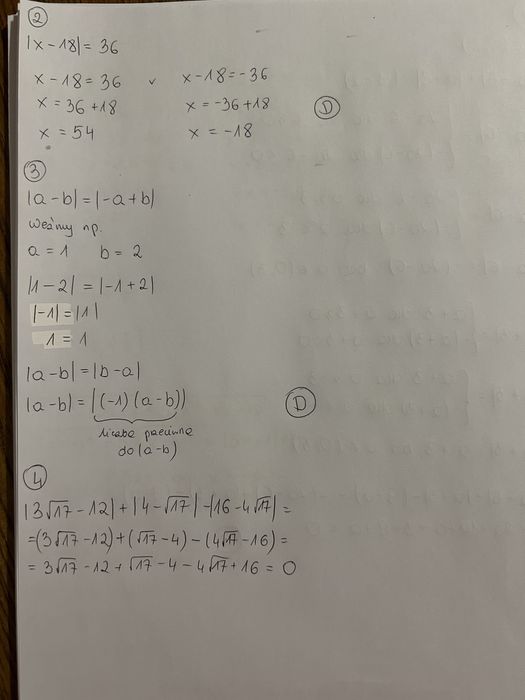 2
|x-18|= 36
x-18 = 36 v x-18=-36
x = 36+18 x = -36+18 D
x = 54 x = -18
3
|a-b|=|-a+b|
weźmy np.
a = 1 b = 2
|1-2| = |-1+2|
|-1| = |1|
1 = 1
|a-b|=|b-a|
|a-b|=|(-1)(a-b)| D
liczba przeciwna
do (a-b)
4
|3√17-12|+|4-√17|-|16-4√17|=
=(3√17-12)+(√17-4)-(4√17-16)=
= 3√17-12+√17-4-4√17+16 = 0